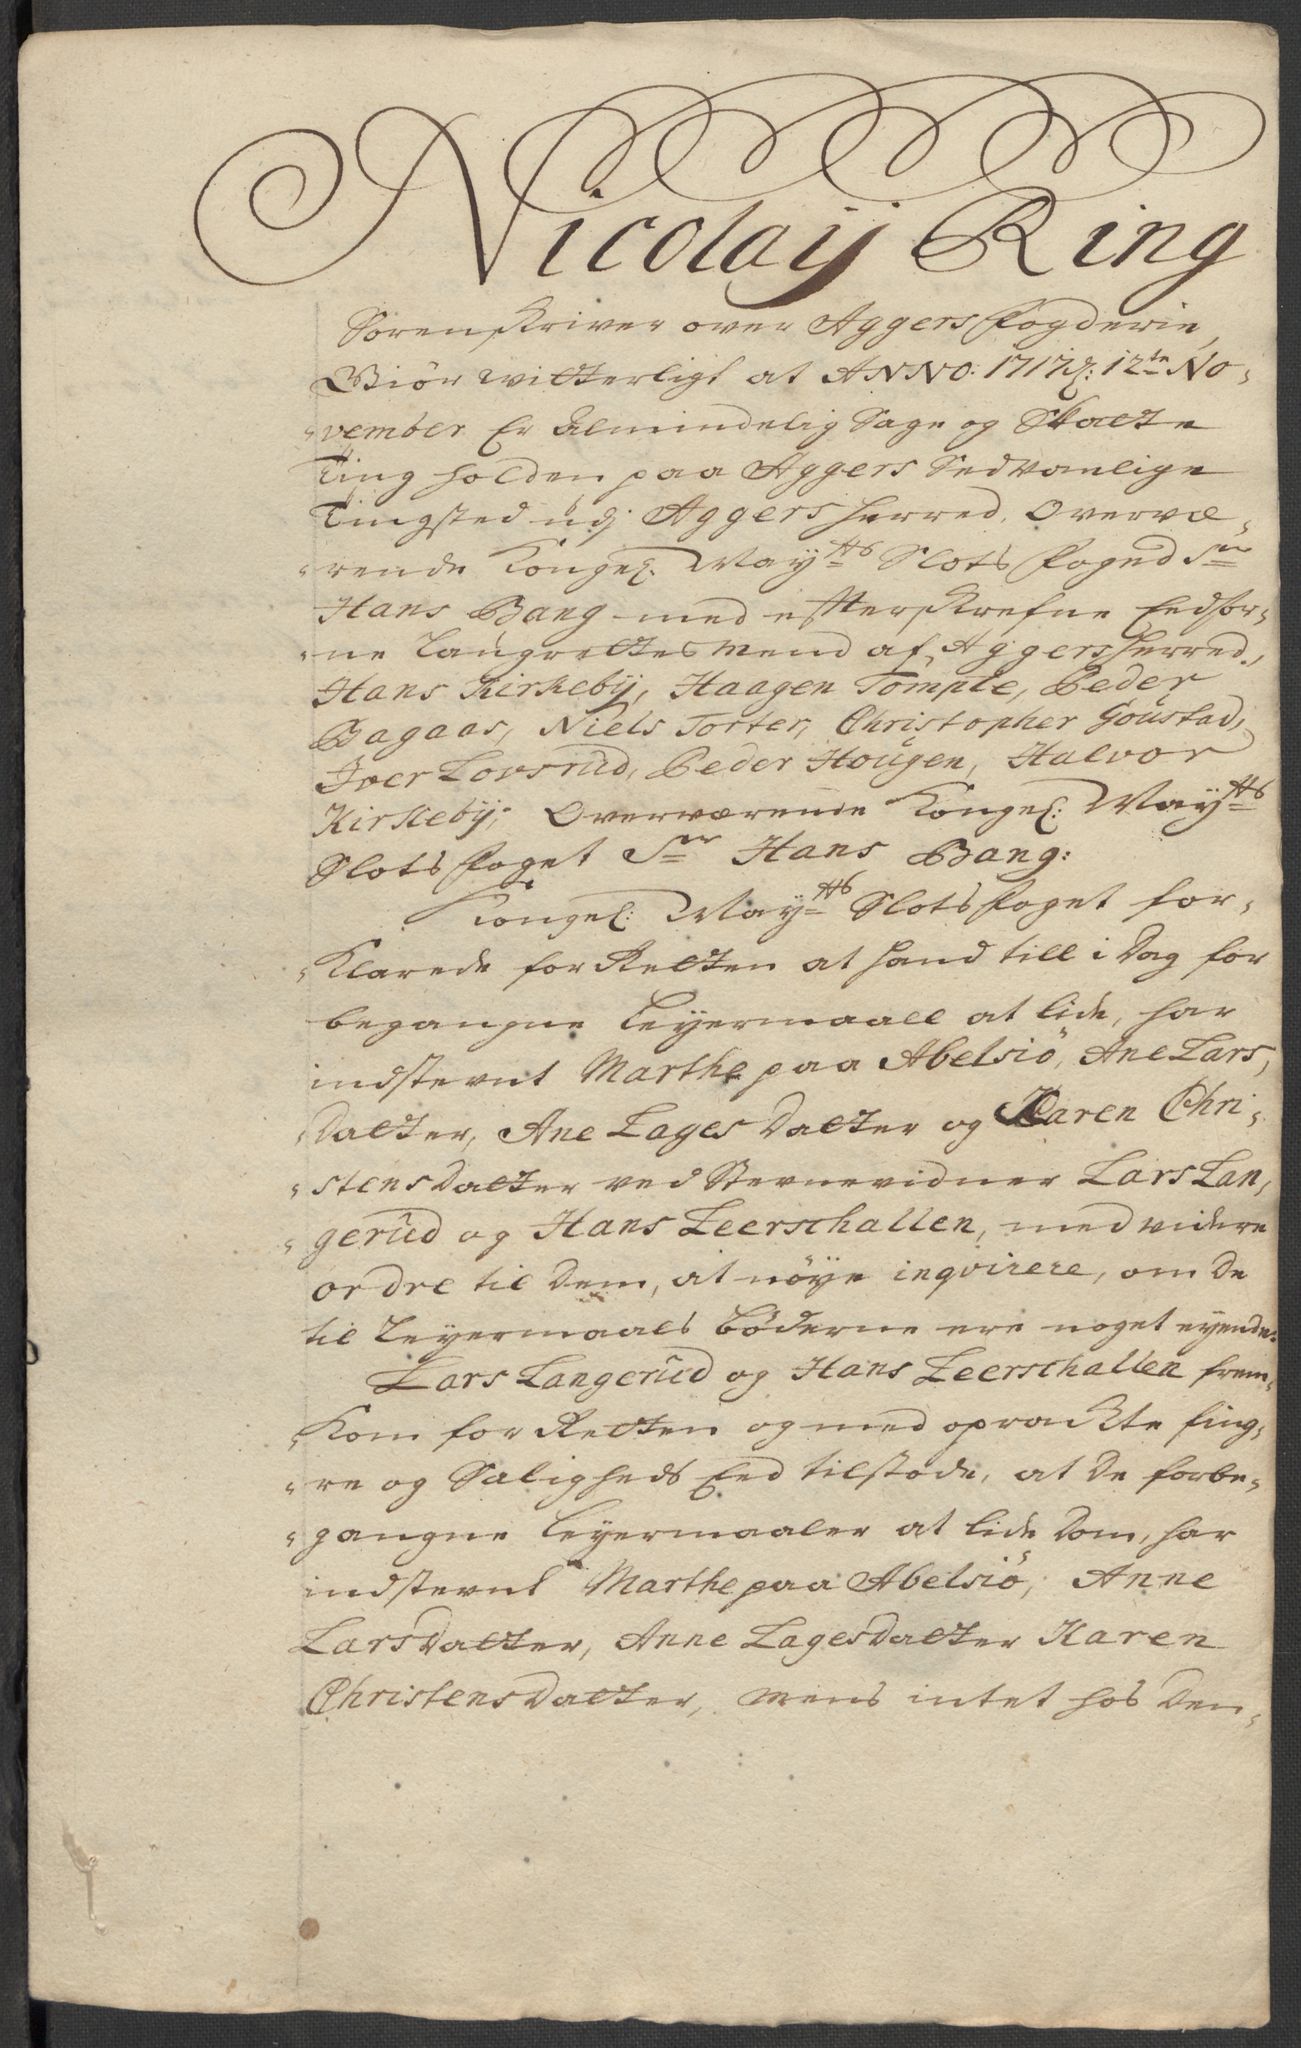 Nicolaÿ Ring
Sorenskriver over Aggers Fogderie,
Giör witterligt at ANNO. 1717 d: 12te No-
-vember Er Almindelig Sage og Skatte
Ting holden paa Aggers Sedvanlige
Tingsted udj Aggersherred, Overvæ-
-rende Kongel: Mayts Slots foged Sr
Hans Bang med effterskrefne Eedsor-
-ne Laugrettes Mend af Aggersherred,
Hans Kirkebÿ, Haagen Tompte, Peder
Bagaas, Niels Torter, Christopher Goustad,
Iver Lovsrud, Peder Hougen, Halvor
Kirkebÿ; Overværende Kongel: Mayts
Slots foget Sr Hans Bang:
Kongel: Mayts Slots foget for-
-klarede for Retten at hand till i dag for
begangne Leyermaall at lide, har
indstevnt Marthe paa Abelsiö, Ane Lars-
-datter, Ane Lages datter og Karen Chri-
-stensdatter ved Stevnevidner Lars Lan-
-gerud og Hans Leerschallen, med videre
ordre til dem, at nöye inqvirere, om de
til Leyermaals böderne ere noget eyende:
Lars Langerud og Hans Leerschallen frem-
-kom for Retten og med oprackte fing-
-re og Saligheds Eed tilstode, at de forbe-
-gangne Leyermaaler at lide dom, har
indstevnt Marthe paa Abelsiö, Anne
Larsdatter, Anne Lagesdatter Karen
Christensdatter, mens intet hos dem-